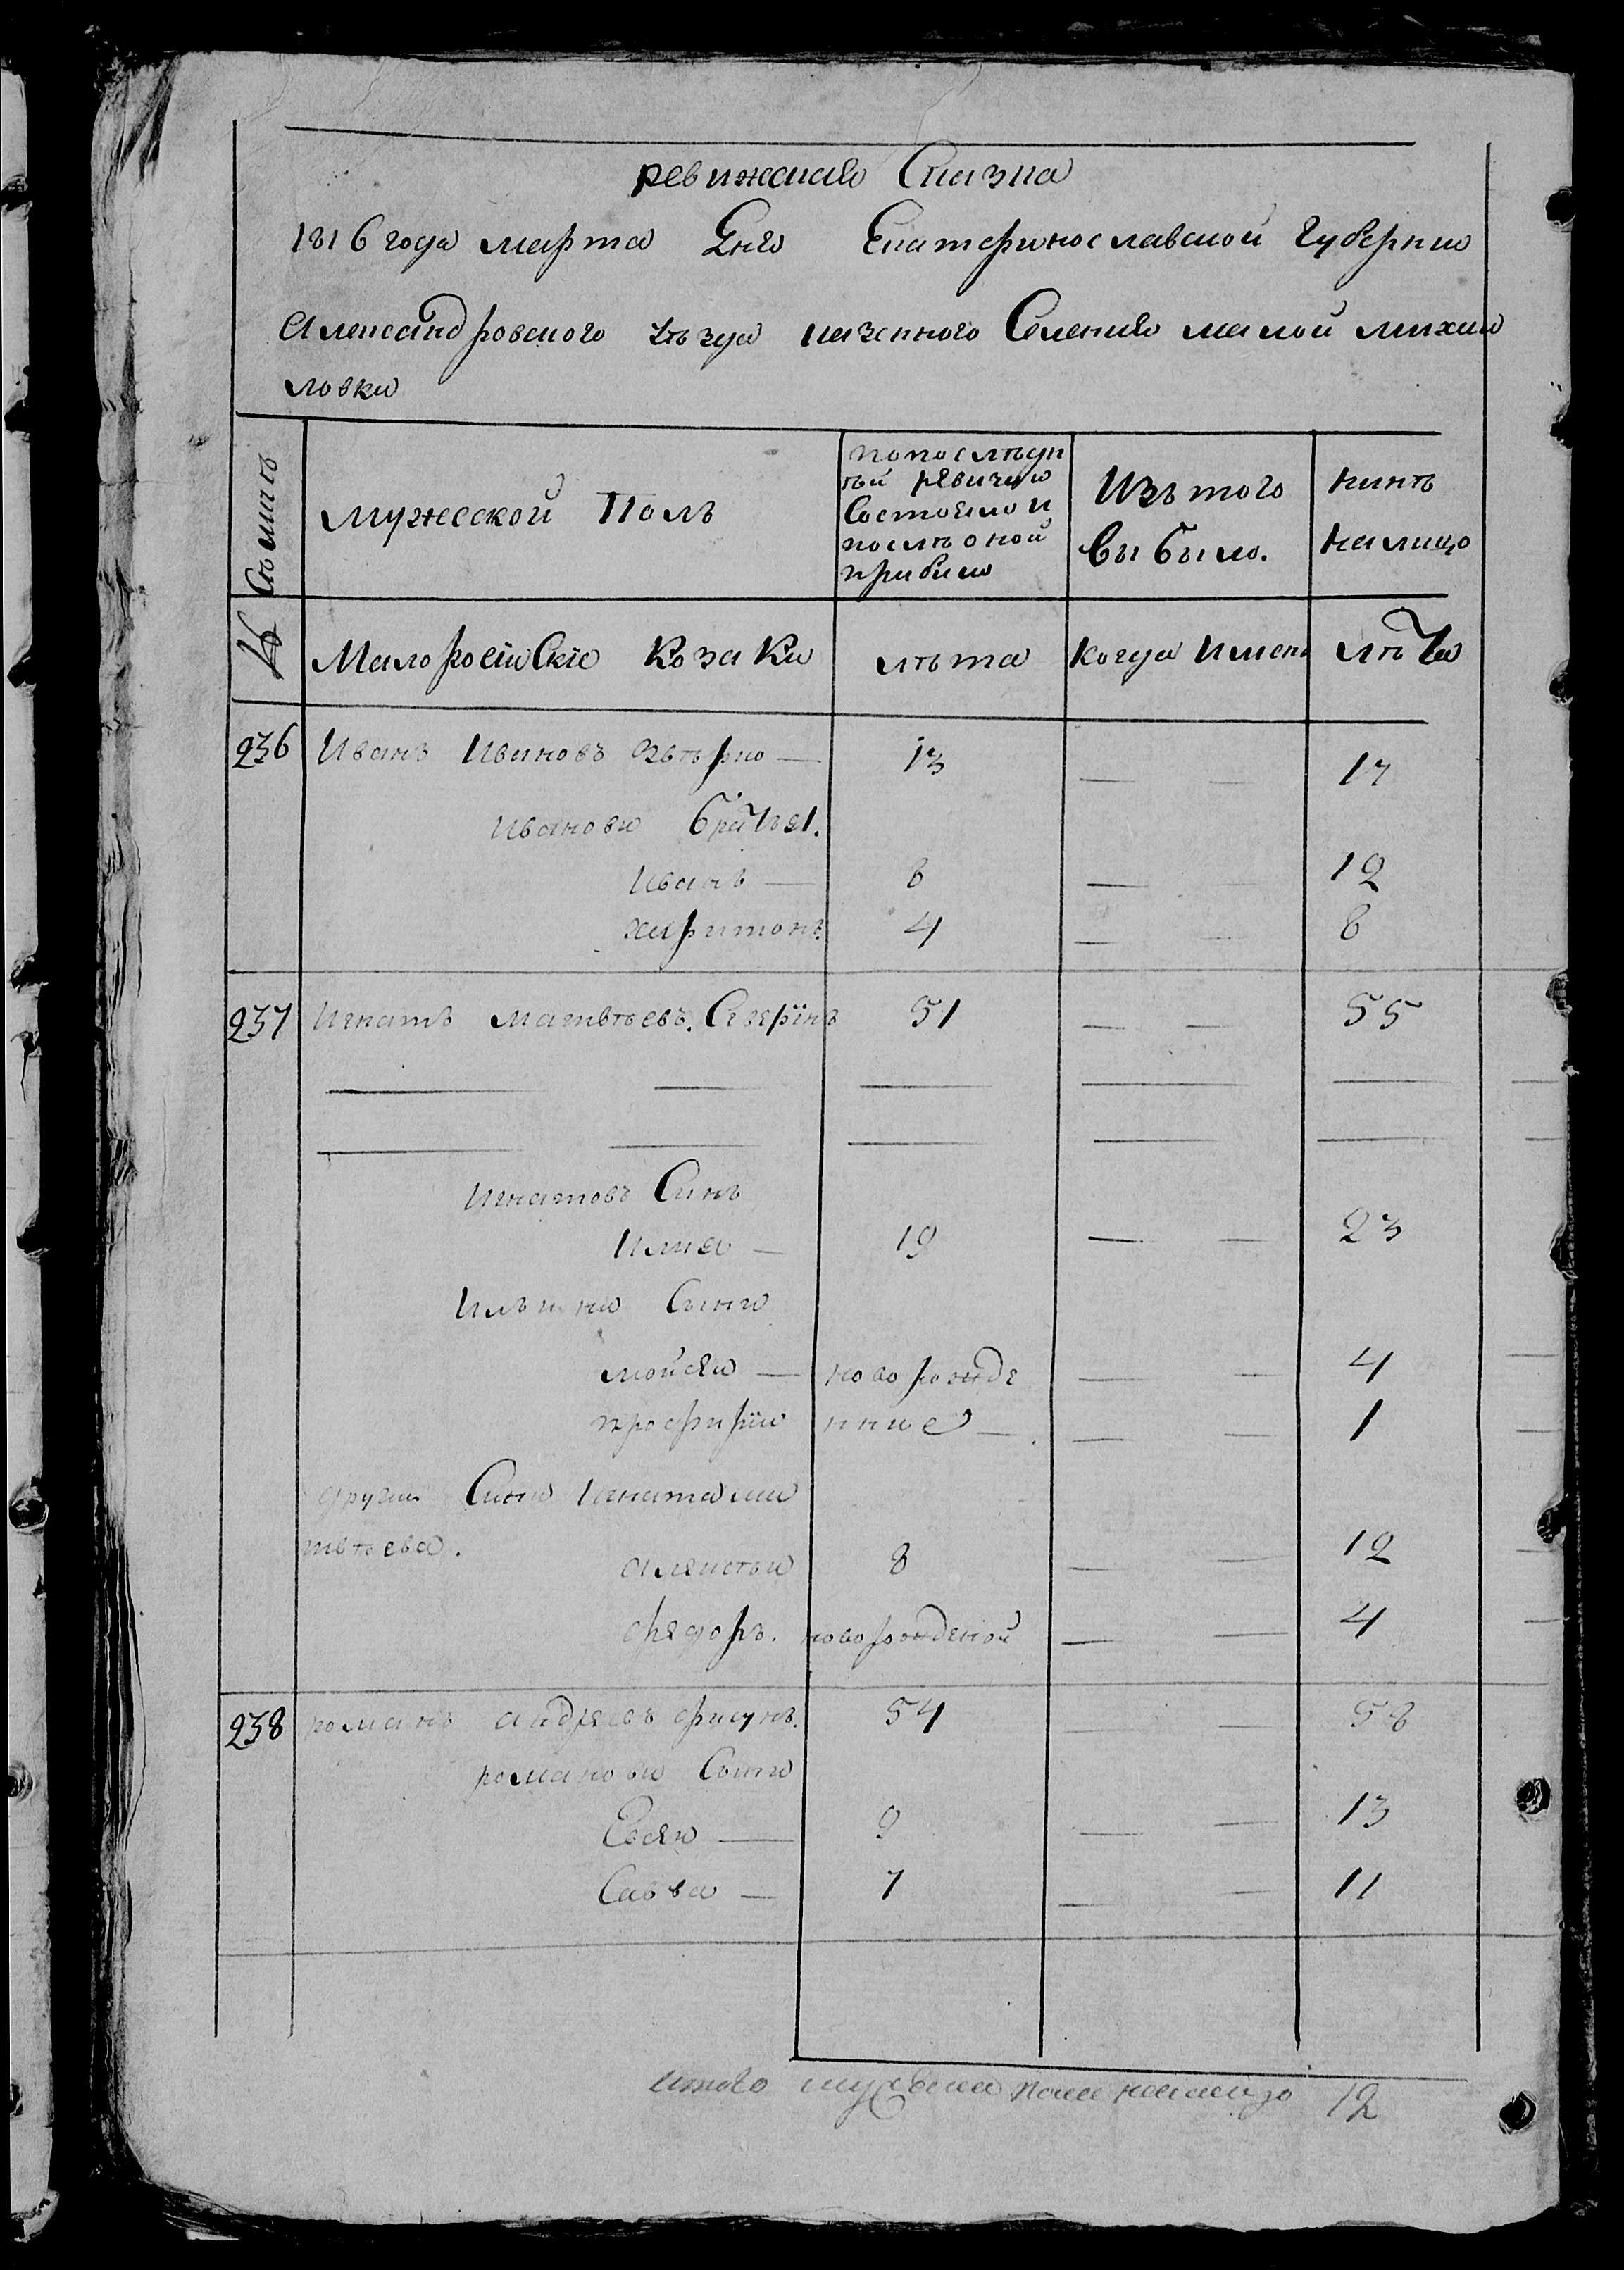 ревижская Сказка
1816 года марта дня Екатеринославской губернии
Александровского уѣзда казенного Селения малой михаи
ловки
Сѣмиѣ
мужеской Полъ
попослѣдн
ѣй ревизии
Состояло и
послѣ оной
прибыло
Изъ того
выбыло.
нинѣ
налицо
№
Малоросийскіе Козаки
лѣта
когда имено
лѣта
236 Иванъ Ивановъ 13 — — 17
Ивановы братья.
Иванъ — 8 — — 12
харитонъ. 4 — — 8
237 Игнатъ матвѣевъ. 51 — — 55
Игнатовъ Синъ
Илия — 19 — — 23
Ильини Сыни
мойсеи — новорожде — — 4
профирїи нние — — — 1
другии Сини Игната ма
твѣева.
алексѣи 8 — — 12
федоръ. новорожденой — — 4
238 романъ андреевъ фисунъ. 54 — — 58
романови Сыни
Евсеи — 9 — — 13
Савва — 7 — — 11
итого мужеска пола налицо 12